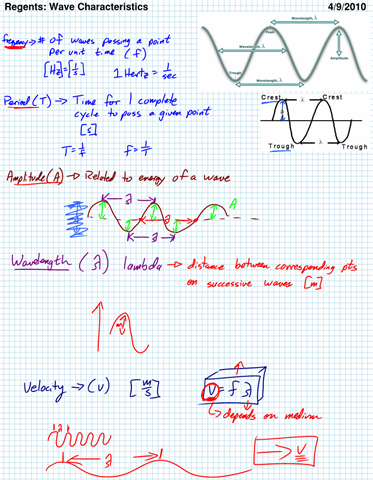 Regents: Wave Characteristics 4/9/2010
frequency → # of waves passing a point
per unit time (f)
[Hz]=[1/s] 1 Hertz = 1/sec
Wavelength, λ
Peak
Wavelength, λ
Amplitude
Trough
Wavelength, λ
Period (T) → Time for 1 complete
cycle to pass a given point
[s]
T=1/f f=1/T
Crest λ Crest
Trough λ Trough
Amplitude (A) → Related to energy of a wave
λ
A
λ
λ
Wavelength (λ) lambda → distance between corresponding pts
on successive waves [m]
Velocity → (v) [m/s] v = f λ
→ depends on medium
λ
→ v